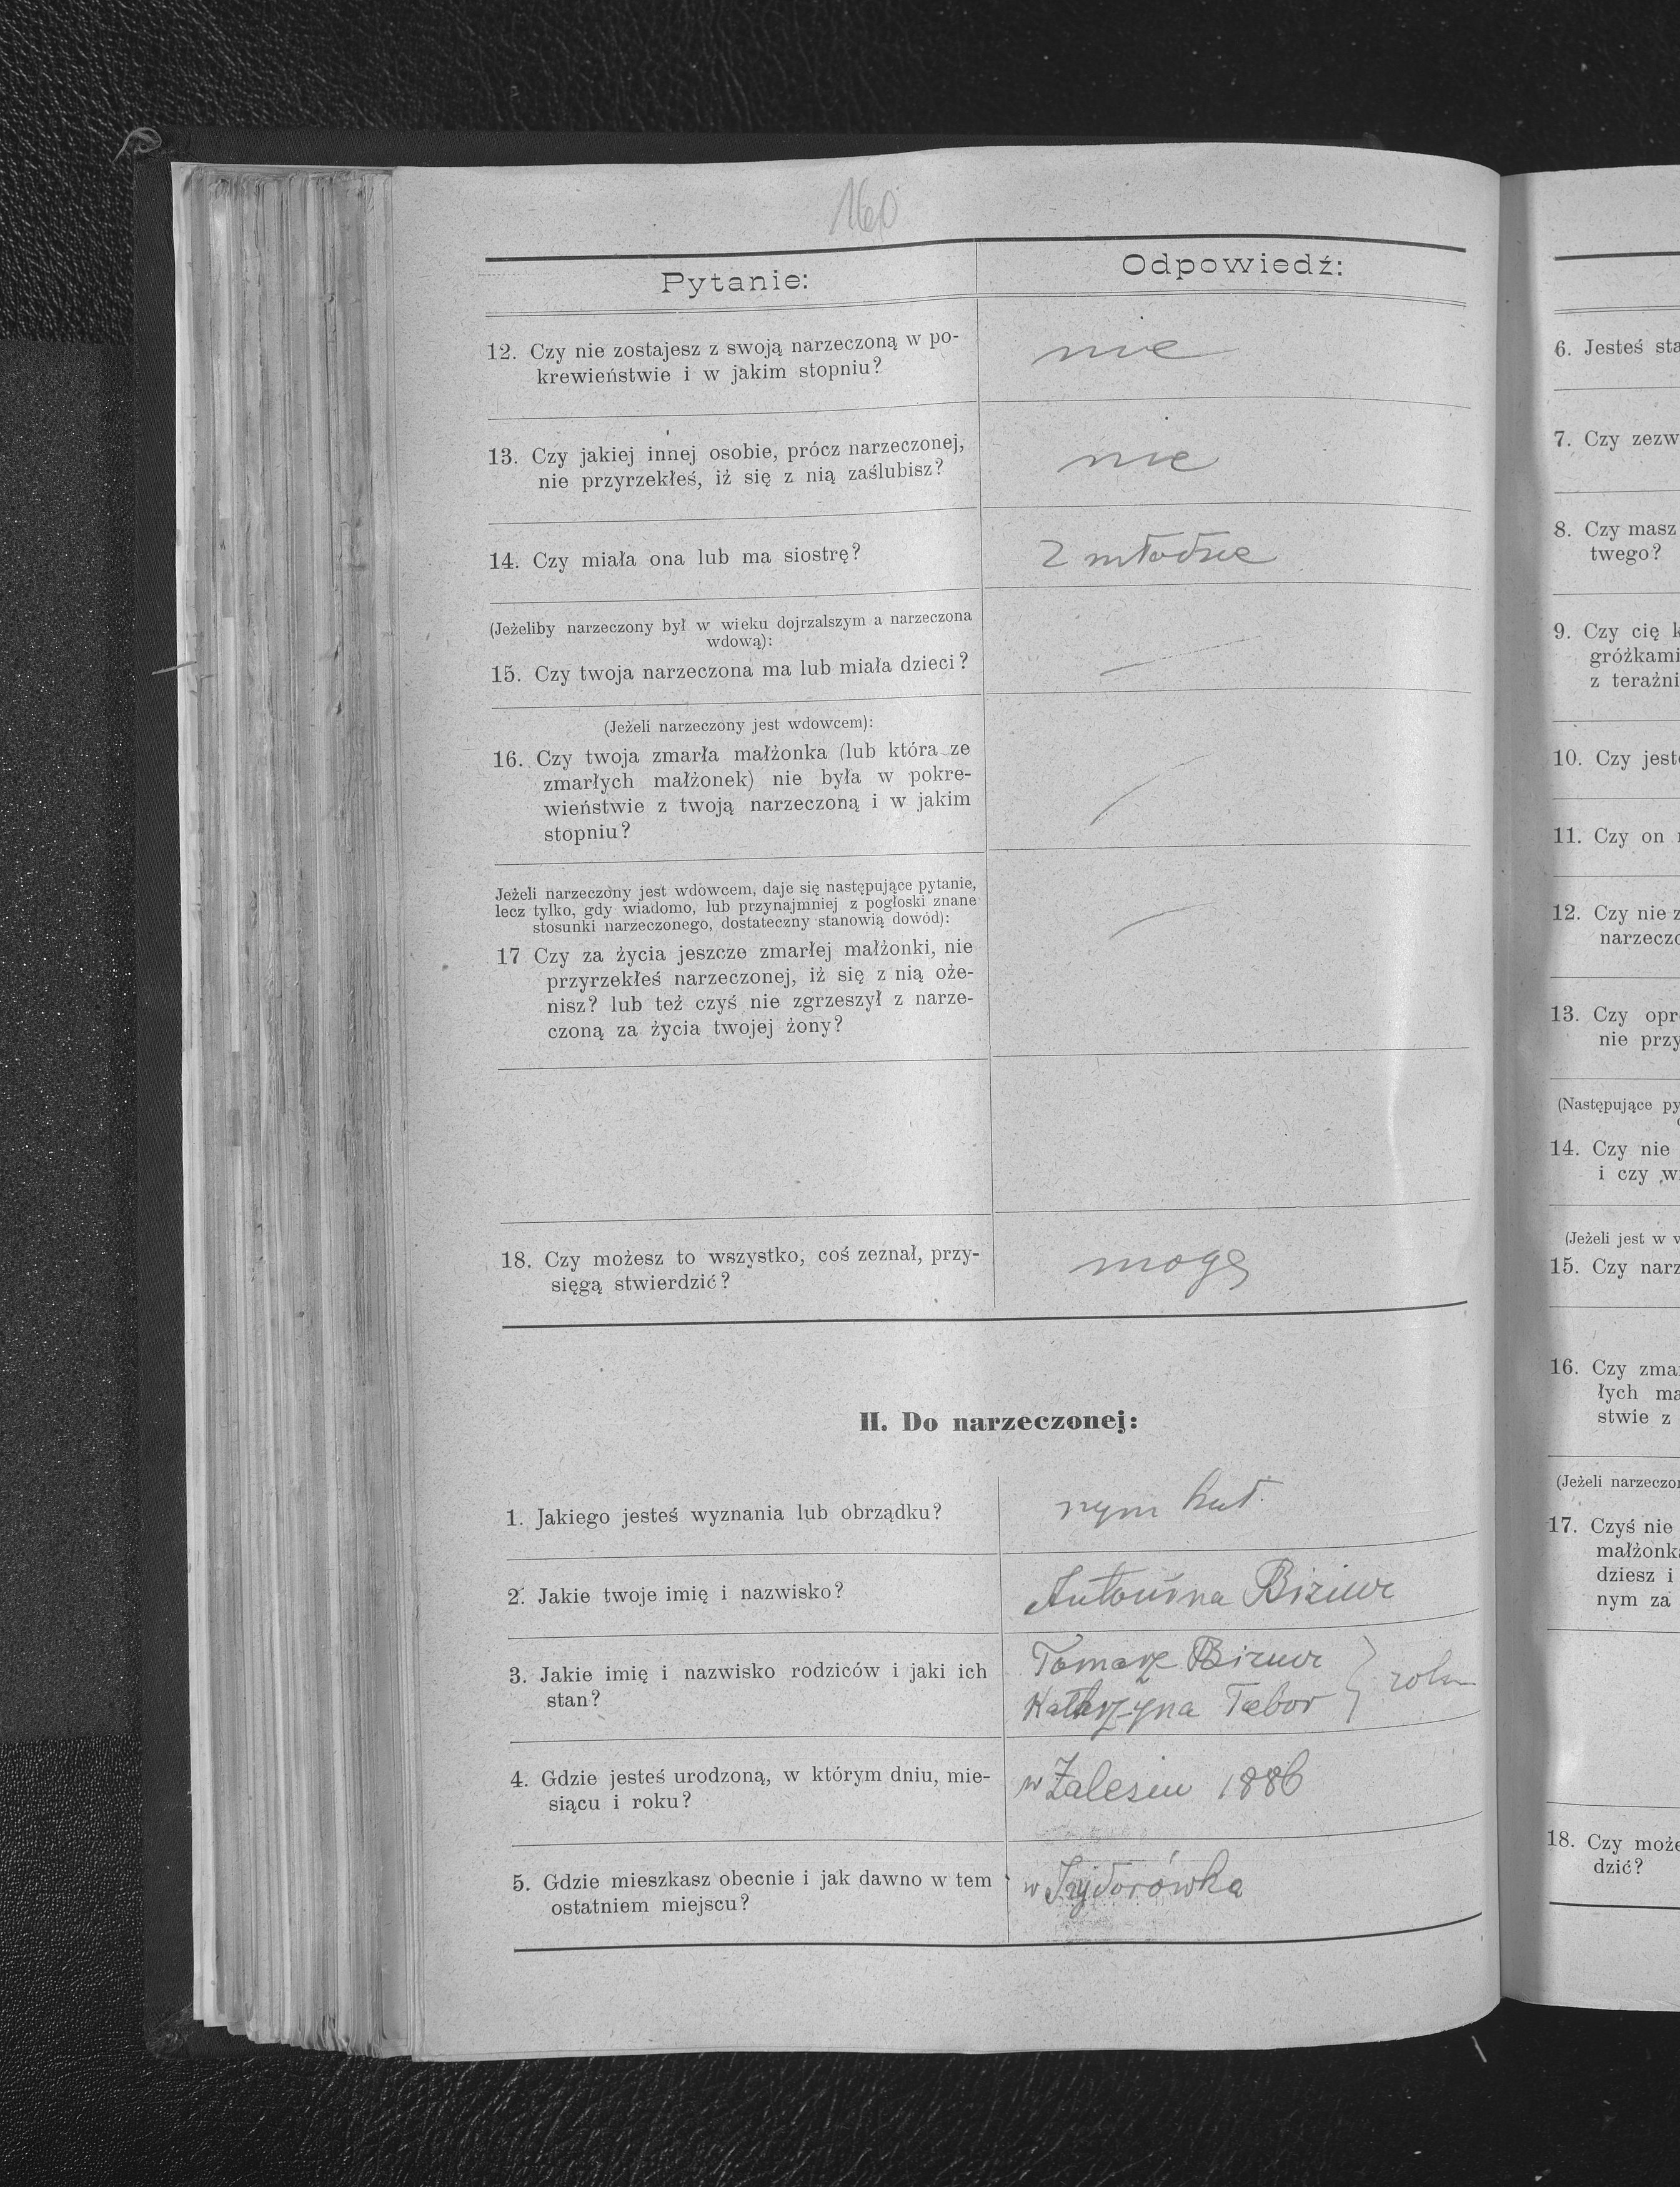 160
Pytanie:
Odpowiedź:
12. Czy nie zostajesz z swoją narzeczoną w po-
krewieństwie i w jakim stopniu?
nie
13. Czy jakiej innej osobie, prócz narzeczonej,
nie przyrzekłeś, iż się z nią zaślubisz?
nie
14. Czy miała ona lub ma siostrę?
2 młodsze
(Jeżeliby narzeczony był w wieku dojrzalszym a narzeczona
wdową):
15. Czy twoja narzeczona ma lub miała dzieci?
(Jeżeli narzeczony jest wdowcem):
16. Czy twoja zmarła małżonka (lub która ze
zmarłych małżonek) nie była w pokre-
wieństwie z twoją narzeczoną i w jakim
stopniu?
Jeżeli narzeczony jest wdowcem, daje się następujące pytanie,
lecz tylko, gdy wiadomo, lub przynajmniej z pogłoski znane
stosunki narzeczonego, dostateczny stanowią dowód):
17 Czy za życia jeszcze zmarłej małżonki, nie
przyrzekłeś narzeczonej, iż się z nią oże-
nisz? lub też czyś nie zgrzeszył z narze-
czoną za życia twojej żony?
18. Czy możesz to wszystko, coś zeznał, przy-
sięgą stwierdzić?
mogę
II. Do narzeczonej:
1. Jakiego jesteś wyznania lub obrządku?
rym kat.
2. Jakie twoje imię i nazwisko?
Antonina
3. Jakie imię i nazwisko rodziców i jaki ich
stan?
Tomasz
Katarzyna Tabor
4. Gdzie jesteś urodzoną, w którym dniu, mie-
siącu i roku?
w Zalesiu 1886
5. Gdzie mieszkasz obecnie i jak dawno w tem
ostatniem miejscu?
w
6. Jesteś sta
7. Czy zezw
8. Czy masz
twego?
9. Czy cię k
gróżkami
z teraźni
10. Czy jest
11. Czy on
12. Czy nie z
narzeczo
13. Czy opr
nie przy
(Następujące py
14. Czy nie
i czy w
(Jeżeli jest w w
15. Czy narz
16. Czy zma
łych ma
stwie z
(Jeżeli narzeczo
17. Czyś nie
małżonk
dziesz i
nym za
18. Czy może
dzić?